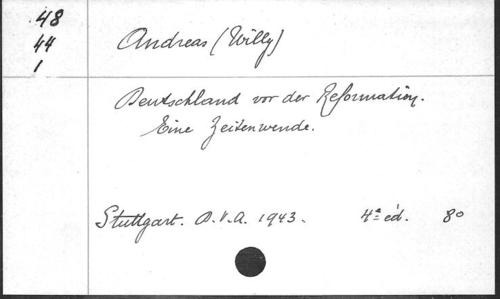 48
44
1
Andreas (Willy)
Deutschland vor der Reformation.
Eine Zeitenwende.
Stuttgart. D.V.A. 1943. 4ª éd. 8º